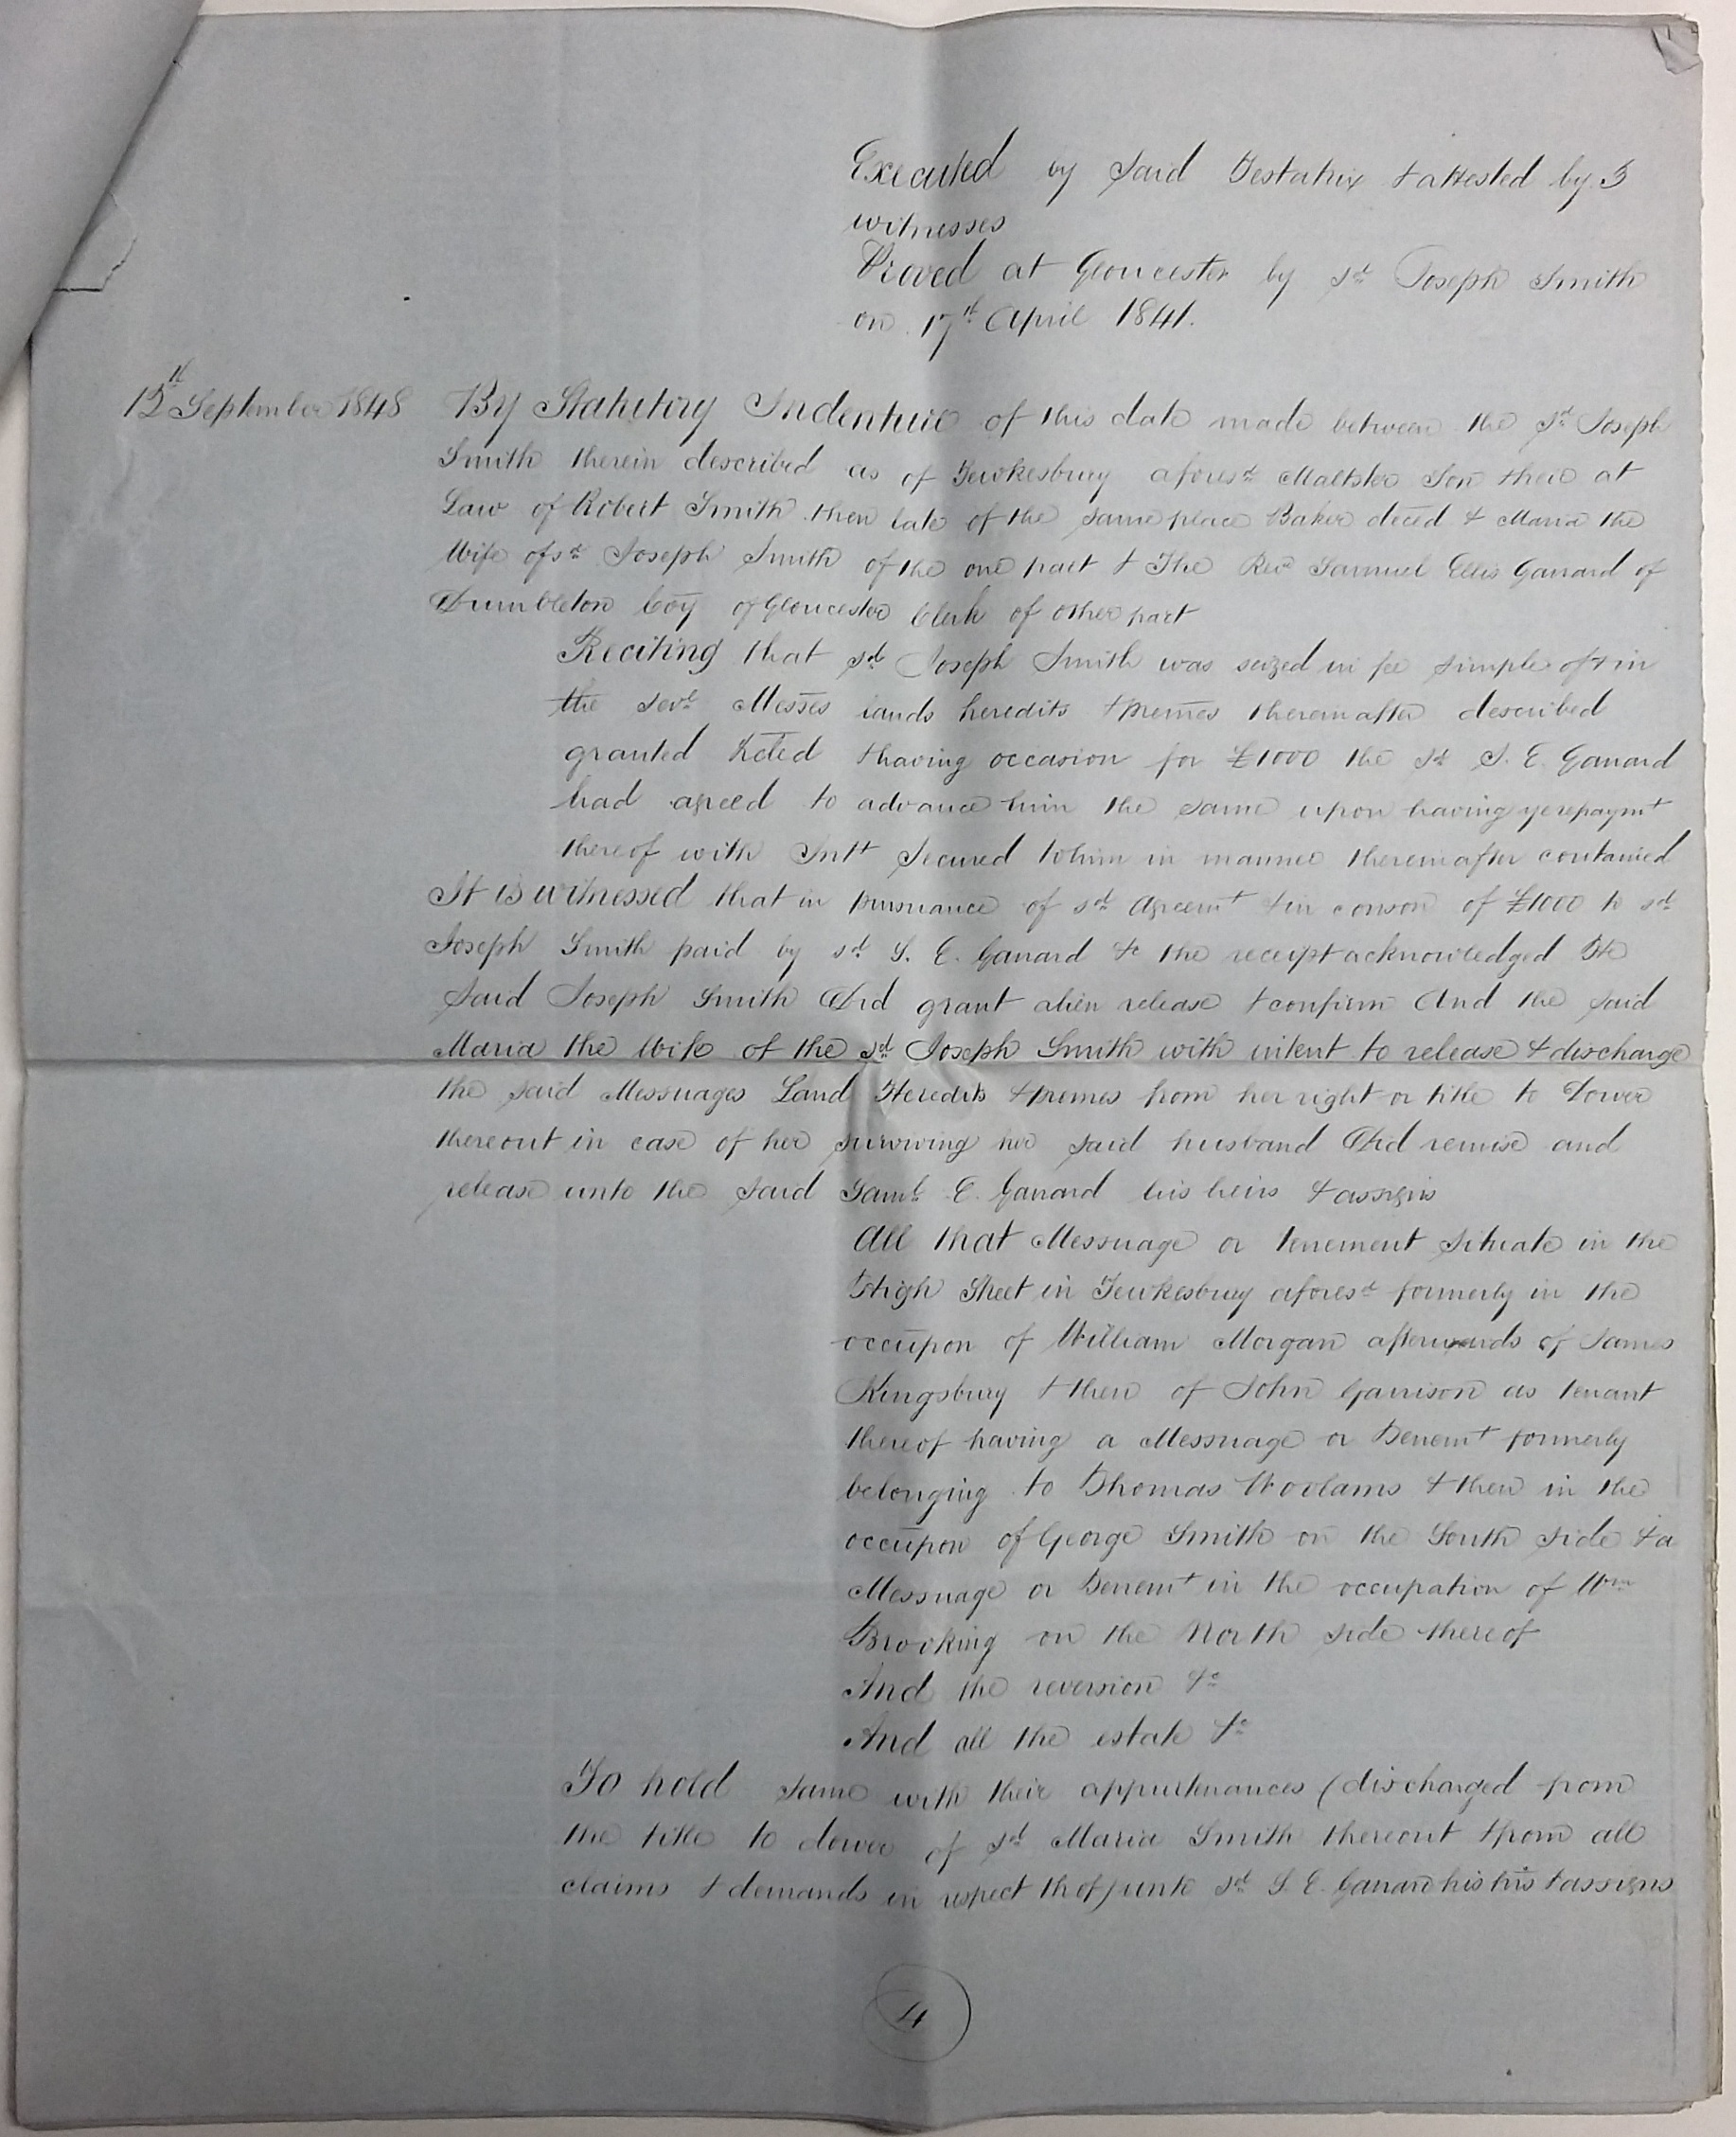 Executed by said Testatrix & attested by 3
witnesses
Proved at Gloucester by sd Joseph Smith
on 17th April 1841.
September 1848 By Statutory Indenture of this date made between the sd Joseph
Smith therein described as of Tewkesbury aforesd Maltster Son & heir at
Law of Robert Smith then late of the same place Baker deced & Maria the
Wife of sd Joseph Smith of the one part & The Revd Samuel Ellis Garrard of
Dumbleton Coy of Gloucester Clerk of other part
Reciting that sd Joseph Smith was seized in fee simple of & in
the sevl Messes lands heredits & premes thereinafter described
granted & having occasion for £1000 the sd S. E. Garrard
had agreed to advance him the same upon having ye repaymt
thereof with Intt secured to him in manner thereinafter contained
It is witnessed that in pursuance of sd Agreemt & in conson of £1000 to sd
Joseph Smith paid by sd S. E. Garrard &c the receipt acknowledged He
said Joseph Smith Did grant alien release & confirm And the said
Maria the Wife of the sd Joseph Smith with intent to release & discharge
the said Messuages Land Heredits & premes from her right or title to Dower
thereout in case of her surviving her said husband Did remise and
release unto the said Saml E. Garrard his heirs & assigns
All that Messuage or tenement situate in the
High Street in Tewkesbury aforesd formerly in the
occupon of William Morgan afterwards of James
Kingsbury & then of John Garrison as tenant
thereof having a Messuage or Tenemt formerly
belonging to Thomas Woolams & then in the
occupon of George Smith on the South side & a
Messuage or Tenemt in the occupation of Wm
Brooking on the North side thereof
And the reversion &c
And all the estate &c
To hold same with their appurtenances (discharged from
the title to dower of sd Maria Smith thereout & from all
claims & demands in respect thof) unto sd S. E. Garrard his hrs & assigns
4